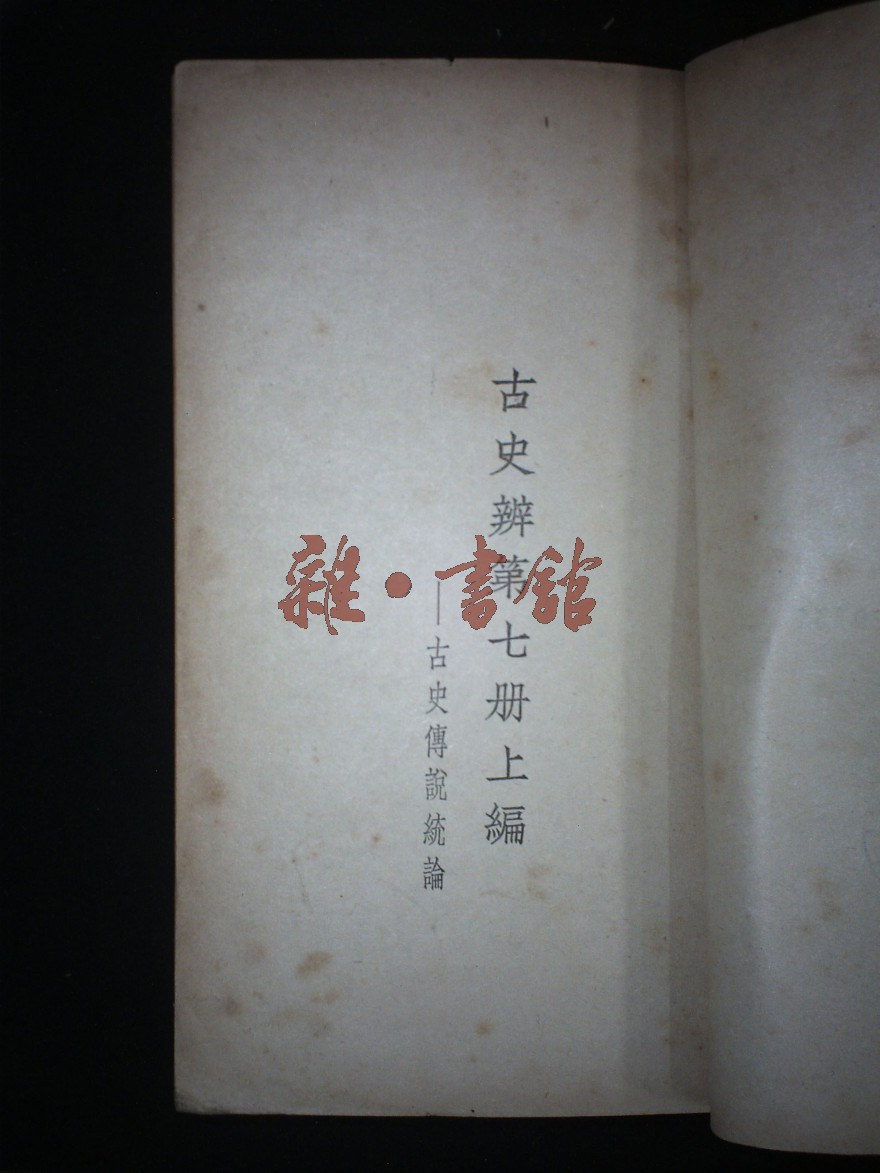 古史辨第七册上編
——古史傳說統論
雜·書館